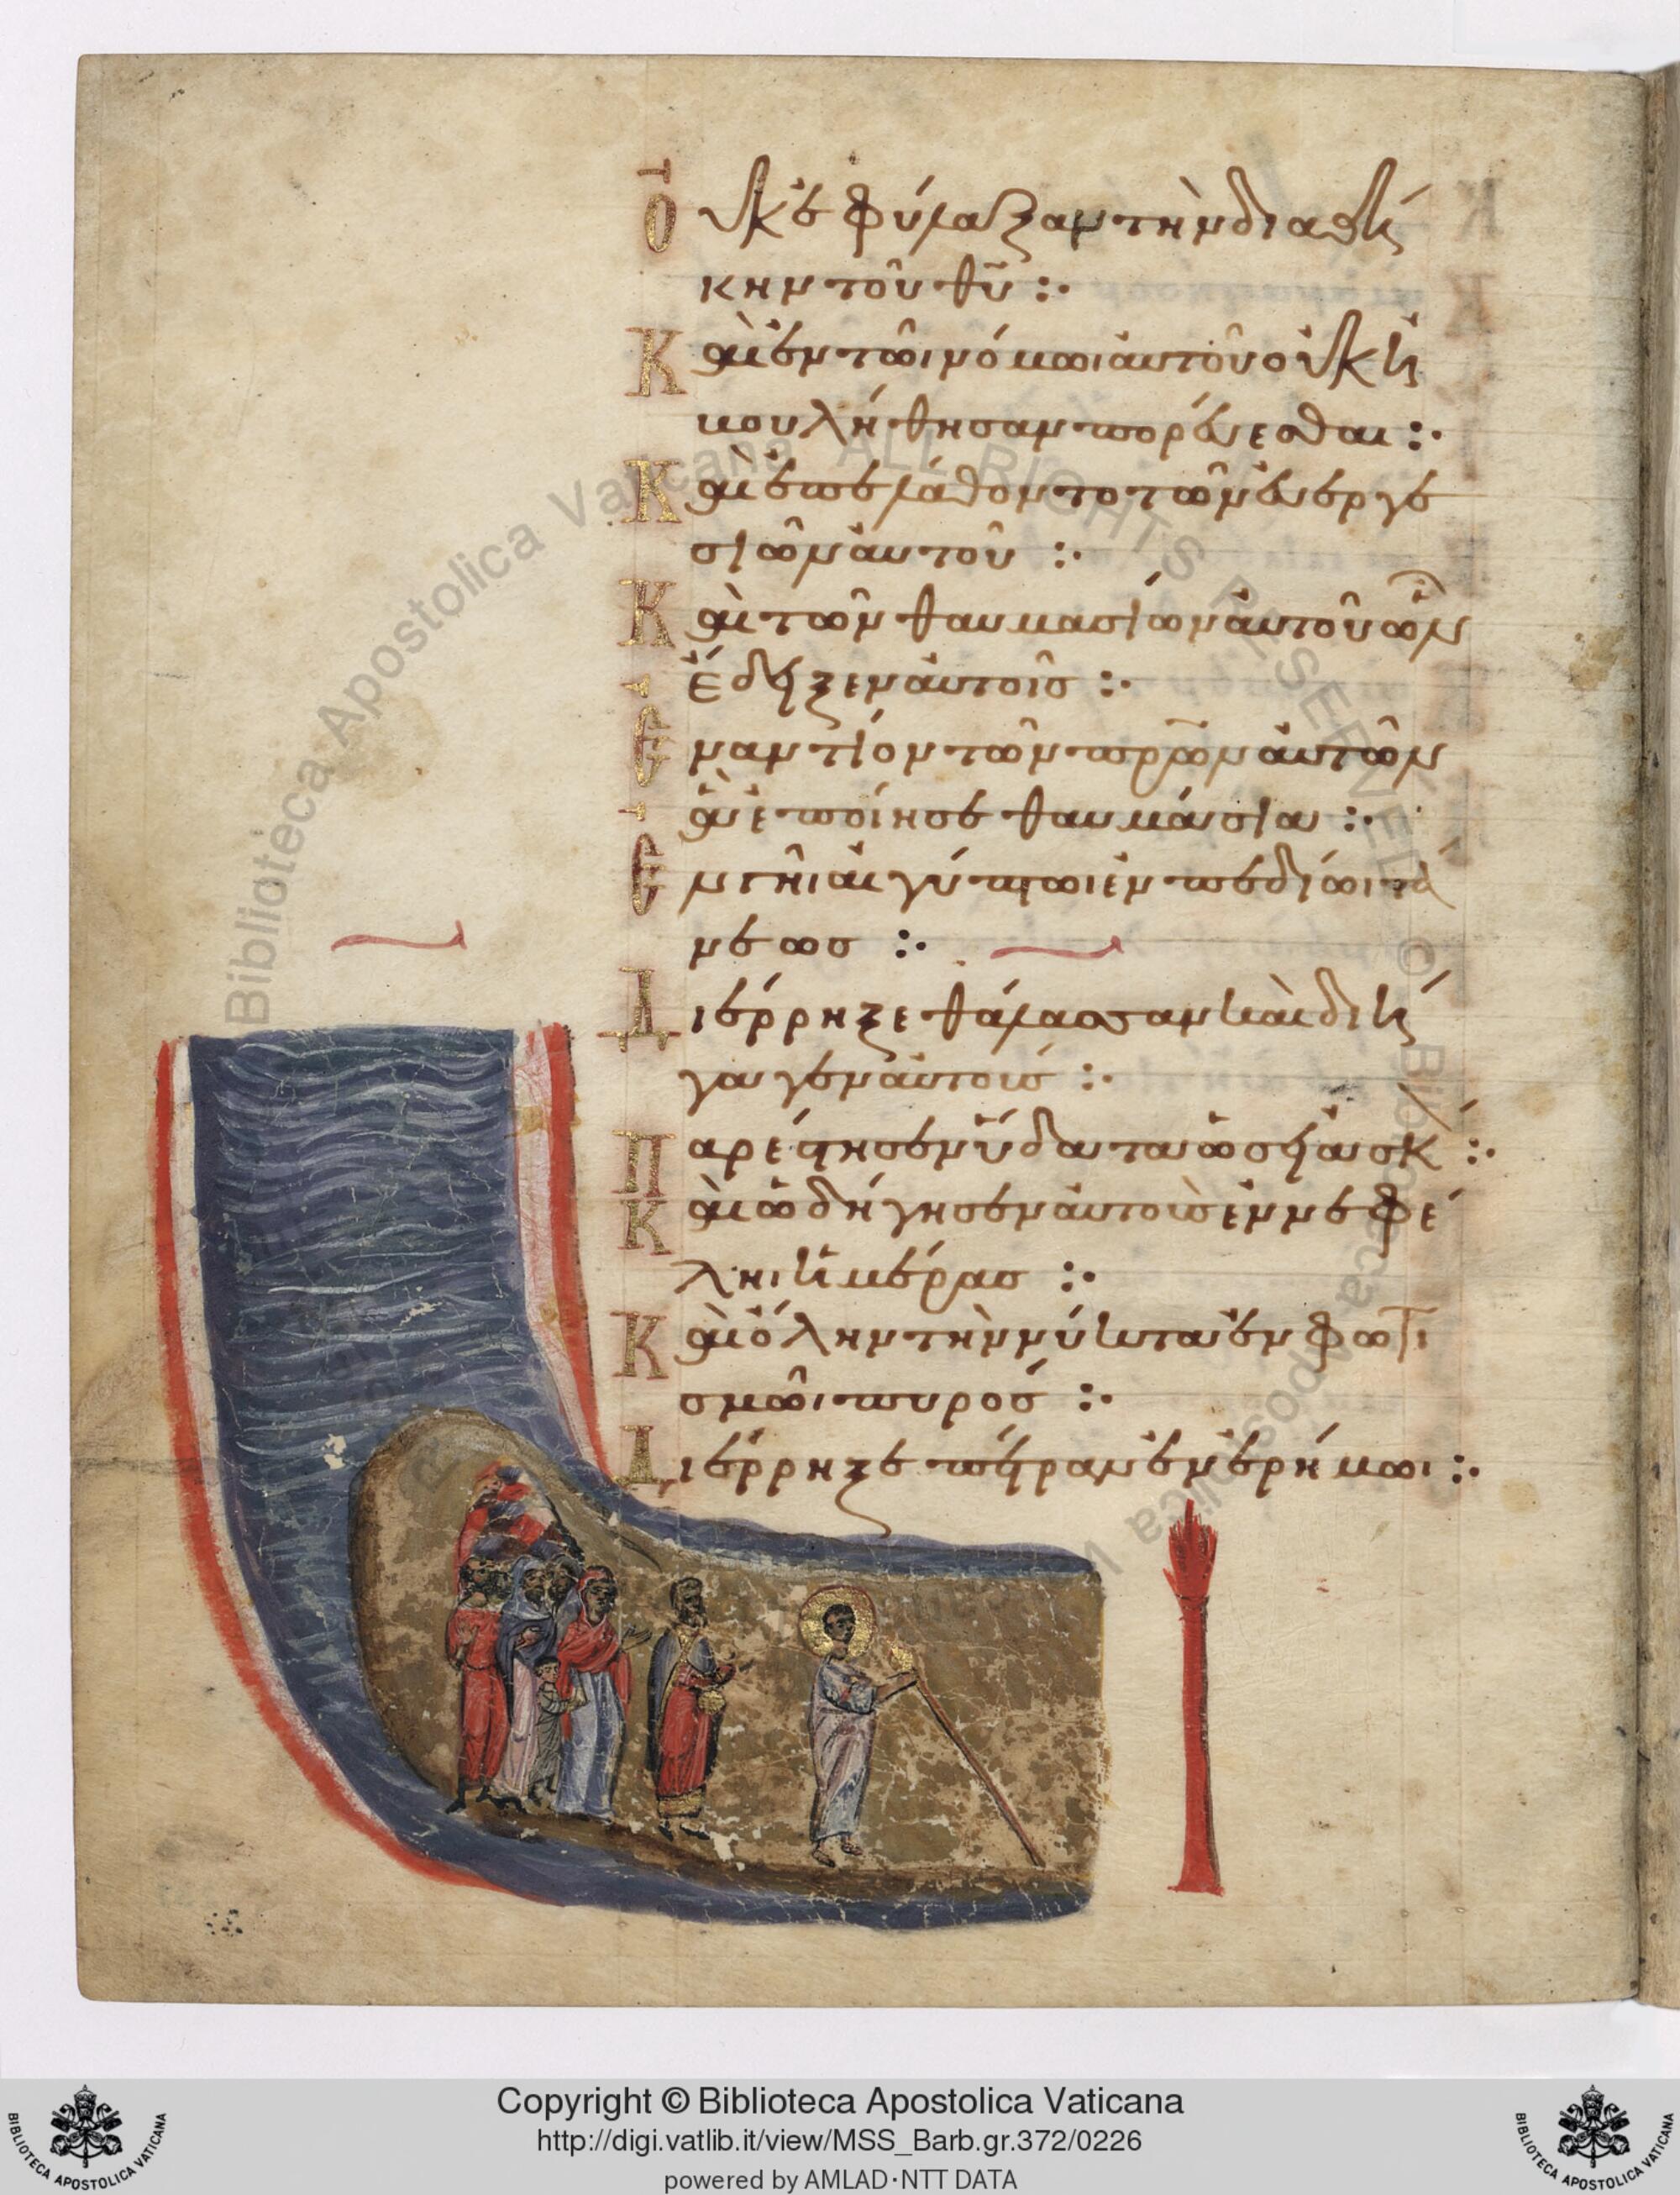 Οὐκ ἐφύλαξαν τὴν διαθή
κην τοῦ θῦ :·
Καὶ ἐν τῶι νόμωι αὐτοῦ οὐκ ἠ
βουλήθησαν πορεύεσθαι :·
Καὶ ἐπελάθοντο τῶν εὐεργε
σιῶν αὐτοῦ :·
Καὶ τῶν θαυμασίων αὐτοῦ ὧν
ἔδειξεν αὐτοῖς :·
Ἐναντίον τῶν πρῶν αὐτῶν
ἃ ἐποίησε θαυμάσια :·
Ἐν γῆι αἰγύπτωι ἐν πεδίωι τά
νεως :·
Διέρρηξε θάλασσαν καὶ διή
γαγεν αὐτούς :·
Παρέστησεν ὕδατα ὡσεὶ ἀσκ :·
Καὶ ὡδήγησεν αὐτοὺς ἐν νεφέ
ληι ἡμέρας :·
Καὶ ὅλην τὴν νύκτα ἐν φωτι
σμῶι πυρός :·
Διέρρηξε πέτραν ἐν ἐρήμωι :·
Biblioteca Apostolica Vaticana ALL RIGHTS RESERVED © Biblioteca Apostolica Vaticana
Copyright © Biblioteca Apostolica Vaticana
http://digi.vatlib.it/view/MSS_Barb.gr.372/0226
powered by AMLAD·NTT DATA
BIBLIOTECA APOSTOLICA VATICANA
BIBLIOTECA APOSTOLICA VATICANA